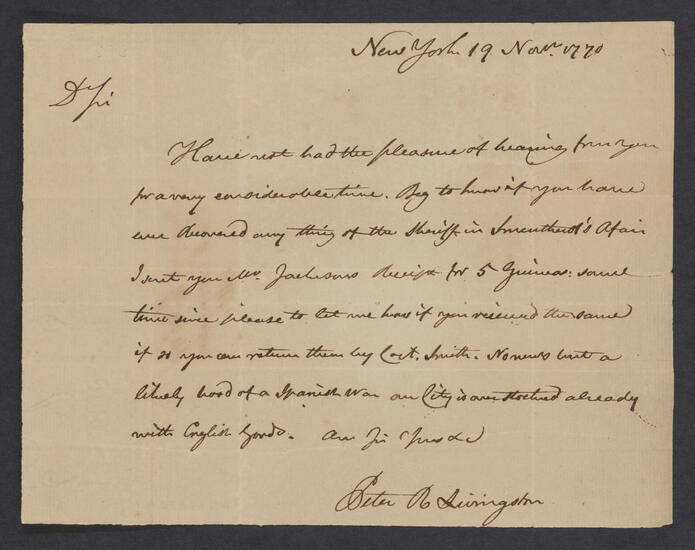 New York 19 Novr. 1770
Dr Sir
Have not had the pleasure of hearing from you
for a very considerable time. Beg to know if you have
ever Recovered any thing of the Sheriff in Afair
I sent you Mr. Jacksons Receipt for 5 Guineas: some
time since please to let me know if you received the same
if so you can return them by Capt. Smith. No news but a
likely hood of a Spanish War our City is over stocked already
with English Goods. am Sir Yours &c
Peter R Livingston